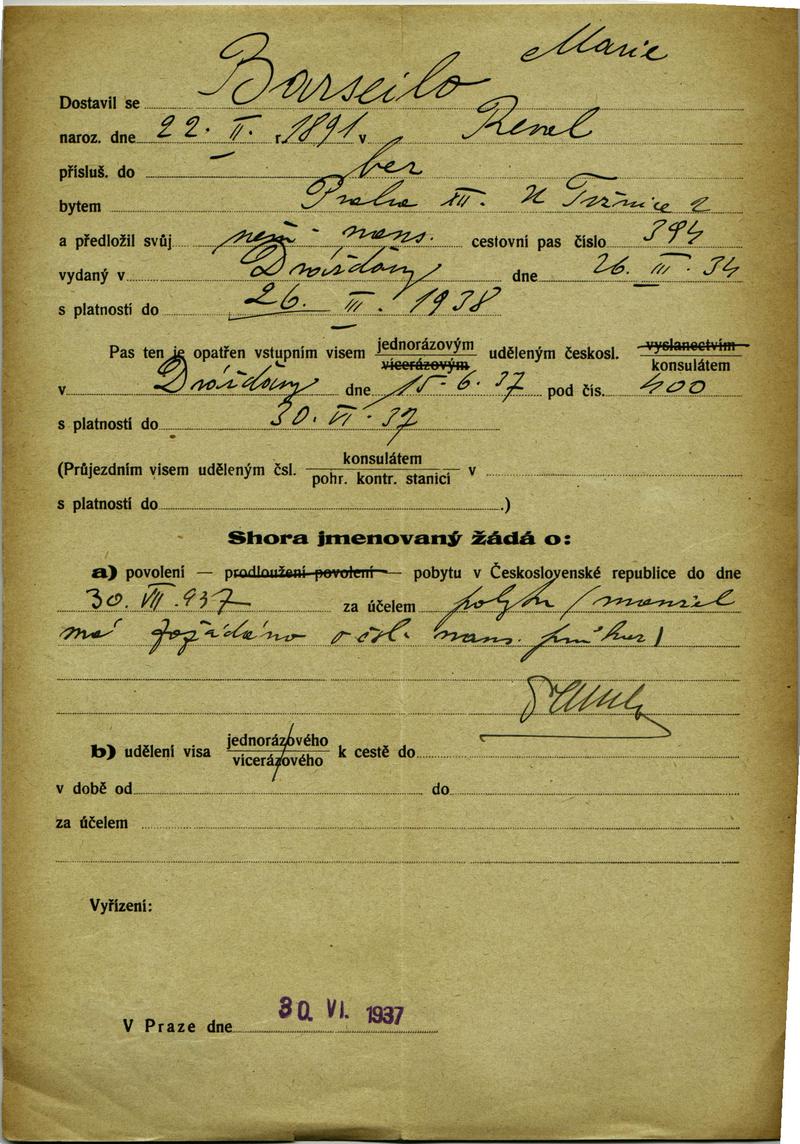 Dostavil se Barseilo Marie
naroz. dne 22. II. r. 1891 v Reval
přísluš. do bez
bytem Praha XII. U Tržnice 2
a předložil svůj něm. nans. cestovní pas číslo 394
vydaný v Drážďany dne 26. III. 34
s platností do 26. III. 1938
Pas ten je opatřen vstupním visem jednorázovým uděleným českosl. vyslanectvím
vícerázovým konsulátem
v Drážďany dne 15. 6. 37 pod čís. 400
s platností do 30. VI. 37
(Průjezdním visem uděleným čsl. konsulátem v
pohr. kontr. stanicí
s platností do .)
Shora jmenovaný žádá o:
a) povolení — prodloužení povolení — pobytu v Československé republice do dne
30. VII. 937 za účelem pobytu (manžel
má zažádáno o čsl. nans. průkaz)
b) udělení visa jednorázového k cestě do
vícerázového
v době od do
za účelem
Vyřízení:
V Praze dne 30. VI. 1937